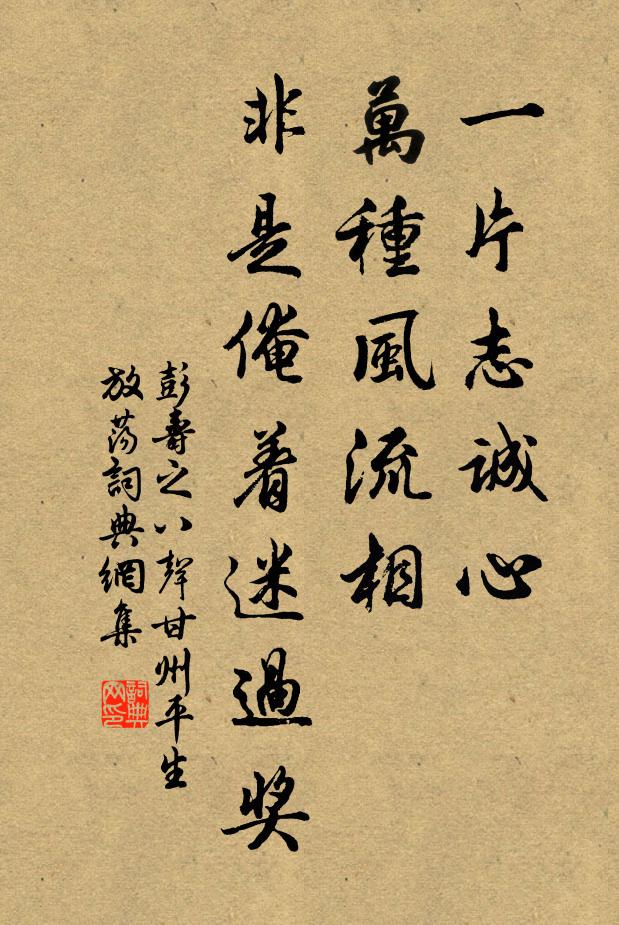 一片志誠心
萬種風流相
非是俺着迷過奖
彭壽之八聲甘州平生
放蕩詞典網集
詞典网印